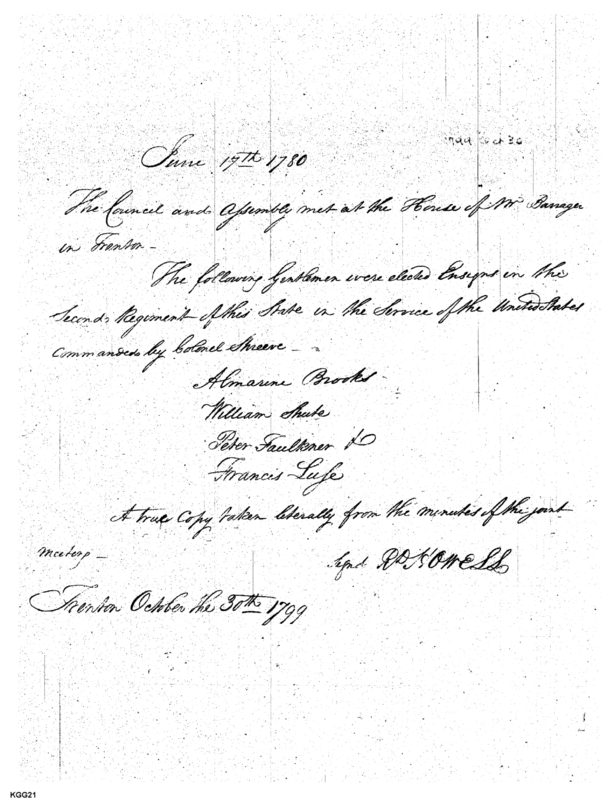 1799 Oct 30
June 17th 1780
The Council and Assembly met at the House of Mr. Barrager
in Trenton -
The following Gentlemen were elected Ensigns in the
Second Regiment of this State in the Service of the United States
Commanded by Colonel Shreeve -
Almarine Brooks -
William Shute
Peter Faulkner &
Francis Luse
A true Copy taken literally from the minutes of the joint
meeting -
Signd RD HOWELL
Trenton October the 30th 1799
KGG21